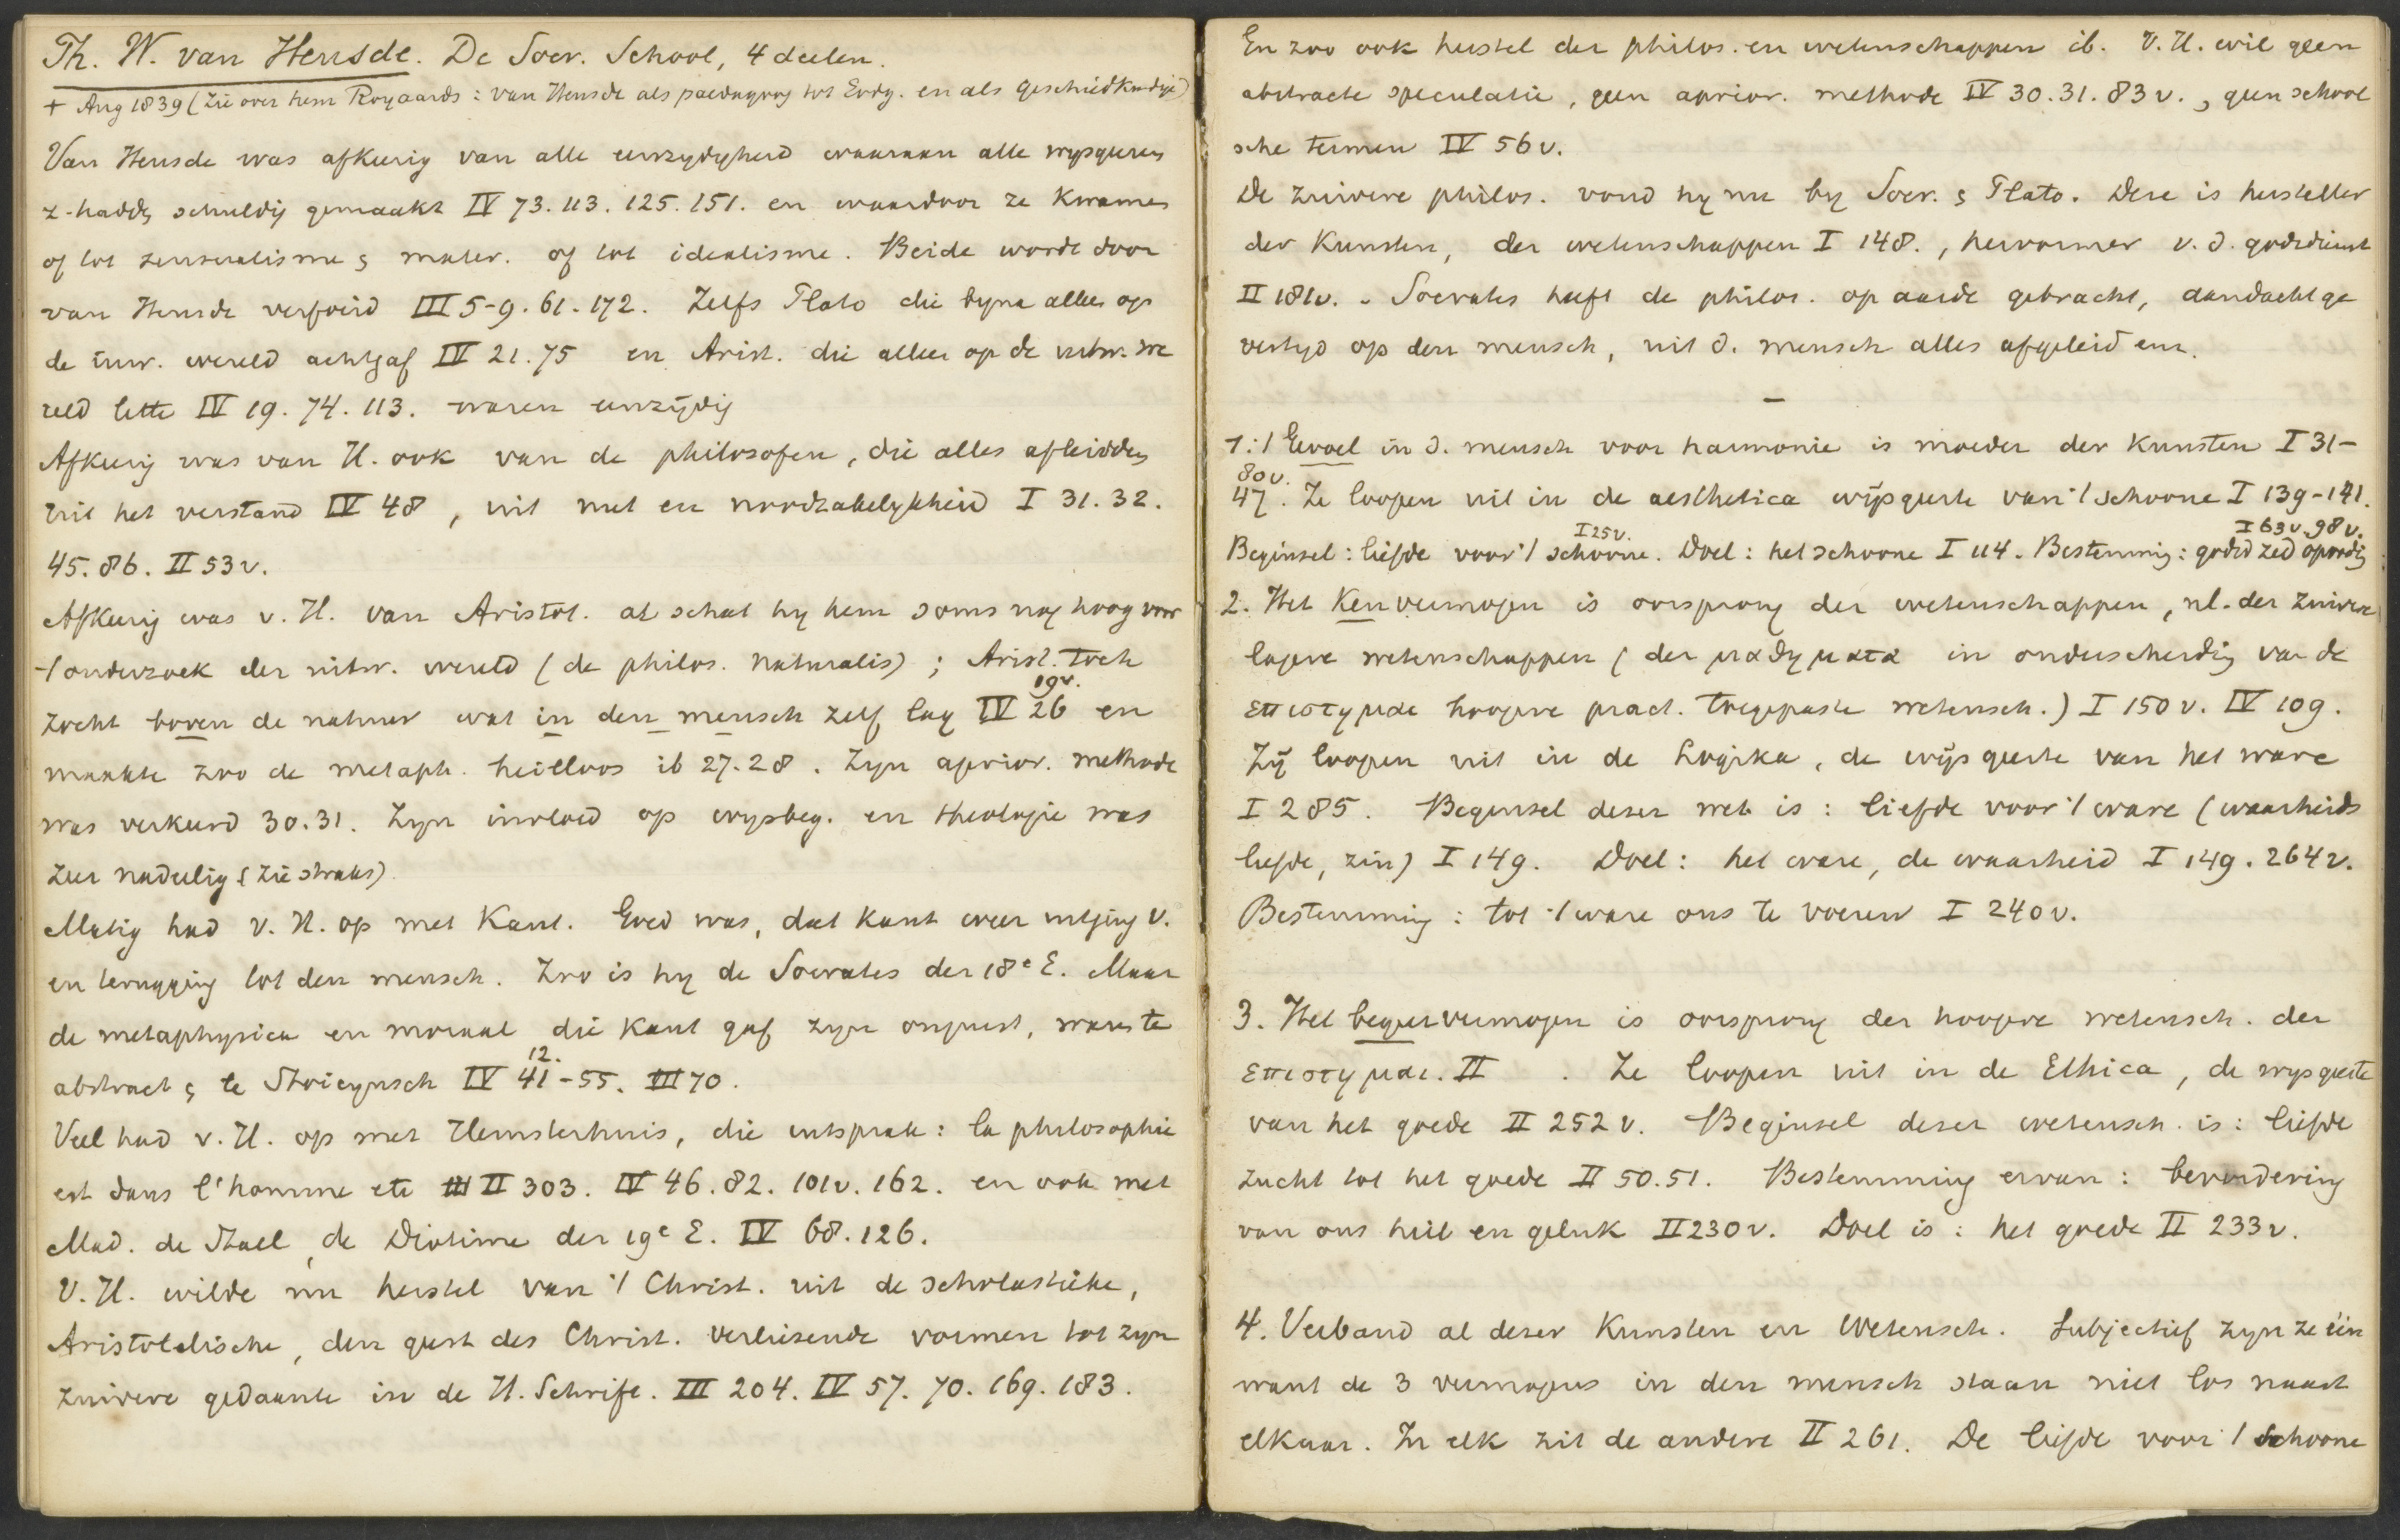 Th. W. van Heusde. De Socr. School, 4 deelen.
+ Aug 1839 (Zie over hem Royaards: van Heusde als paedagoog tot Evdg. en als geschiedkundige)
Van Heusde was afkeerig van alle eenzydigheid waaraan alle wysgeeren
z. hadden schuldig gemaakt IV 73. 113. 125. 151. en waardoor ze kwamen
of tot sensualisme & mater. of tot idealisme. Beide wordt door
van Heusde verfoeid III 5-9. 61. 172. Zelfs Plato die byna alleen op
de inw. wereld acht gaf IV 21. 75 en Arist. die alleen op de uitw. we
reld lette IV 19. 74. 113. waren eenzijdig
Afkeerig was van H. ook van de philosofen, die alles afleidden
uit het verstand IV 48, uit nut en noodzakelykheid I 31. 32.
45. 86. II 53 v.
Afkeerig was v. H. van Aristot. al schat hy hem soms nog hoog voor
't onderzoek der uitw. wereld (de philos. naturalis); Arist. toch
zocht boven de natuur wat in den mensch zelf lag IV 19v. 26 en
maakte zoo de metaph. heilloos ib 27. 28. Zyn aprior. methode
was verkeerd 30. 31. Zyn invloed op wysbeg. en theologie was
zeer nadeelig (zie straks).
Matig had v. H. op met Kant. Goed was, dat Kant weer uitging v.
en terugging tot den mensch. Zoo is hy de Socrates der 18e E. Maar
de metaphysica en moraal die Kant gaf zyn onjuist, want te
abstract & te Stoicynsch IV 12. 41-55. III 70.
Veel had v. H. op met Hemsterhuis, die uitsprak: la philosophie
est dans l'homme etc II 303. IV 46. 82. 101v. 162. en ook met
Mad. de Stael, de Diotime der 19e E. IV 68. 126.
V. H. wilde nu herstel van 't Christ. uit de scholastieke,
Aristotelische, den geest des Christ. verliezende vormen tot zyn
zuivere gedaante in de H. Schrift. III 204. IV 57. 70. 169. 183.
En zoo ook herstel der philos. en wetenschappen ib. V. H. wil geen
abstracte speculatie, geen aprior. methode IV 30. 31. 83 v., geen school
sche termen IV 56 v.
De zuivere philos. vond hy nu by Socr. & Plato. Deze is hersteller
der Kunsten, der wetenschappen I 148., hervormer v. d. godsdienst
II 181v. - Socrates heeft de philos. op aarde gebracht, aandacht ge
vestigd op den mensch, uit d. mensch alles afgeleid enz.
—
1. 't Gevoel in d. mensch voor harmonie is moeder der Kunsten I 31-
80 v.
47. Ze loopen uit in de aesthetica wijsgeerte van 't schoone I 139-141.
I 25 v. I 63 v. 98 v.
Beginsel: liefde voor 't schoone. Doel: het schoone I 114. Bestemming: godsd zed opvoedg
2. Het Kenvermogen is oorsprong der wetenschappen, nl. der zuivere
lagere wetenschappen (der μαθηματα in onderscheiding van de
επιστημαι hoogere pract. toegepaste wetensch.) I 150 v. IV 109.
Zij loopen uit in de Logika, de wijsgeerte van het ware
I 285. Beginsel dezer wet is: liefde voor 't ware (waarheids
liefde, zin) I 149. Doel: het ware, de waarheid I 149. 264v.
Bestemming: tot 't ware ons te voeren I 240 v.
3. Het begeervermogen is oorsprong der hoogere wetensch. der
επιστημαι. II . Ze loopen uit in de Ethica, de wysgeerte
van het goede II 252 v. Beginsel dezer wetensch. is: liefde
zucht tot het goede II 50. 51. Bestemming ervan: bevordering
van ons heil en geluk II 230 v. Doel is: het goede II 233 v.
4. Verband al dezer Kunsten en Wetensch. Subjectief zyn ze één
want de 3 vermogens in den mensch staan niet los naast
elkaar. In elk zit de andere II 261. De liefde voor 't schoone